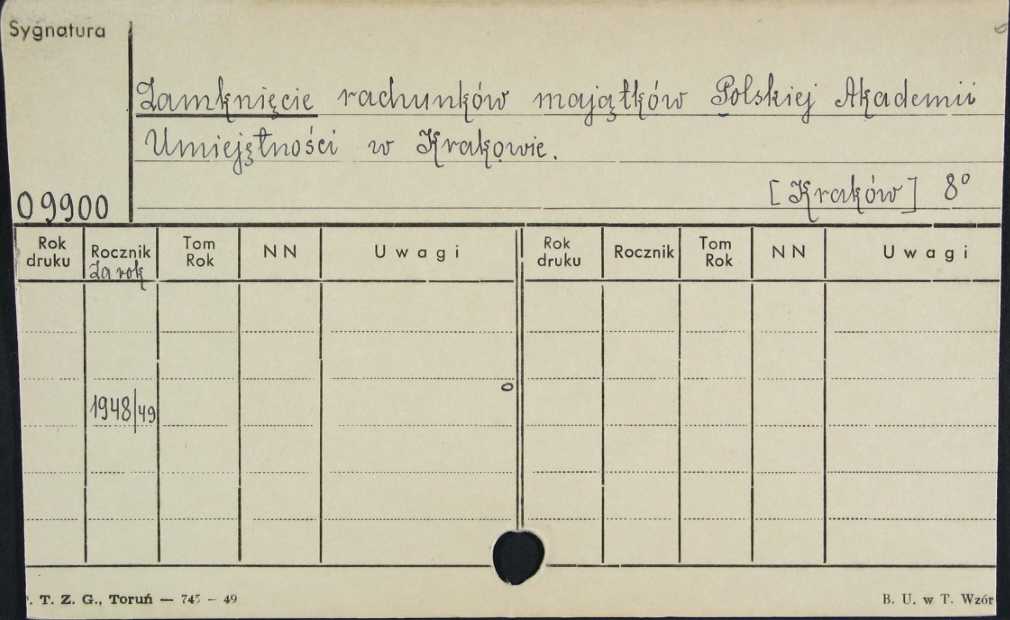 Sygnatura
Zamknięcie rachunków majątków Polskiej Akademii
Umiejętności w Krakowie.
[Kraków] 8°
09900
Rok druku Rocznik Tom Rok NN Uwagi Rok druku Rocznik Tom Rok NN Uwagi
Za rok
1948/49
. T. Z. G., Toruń — 745 – 49
B. U. w T. Wzór